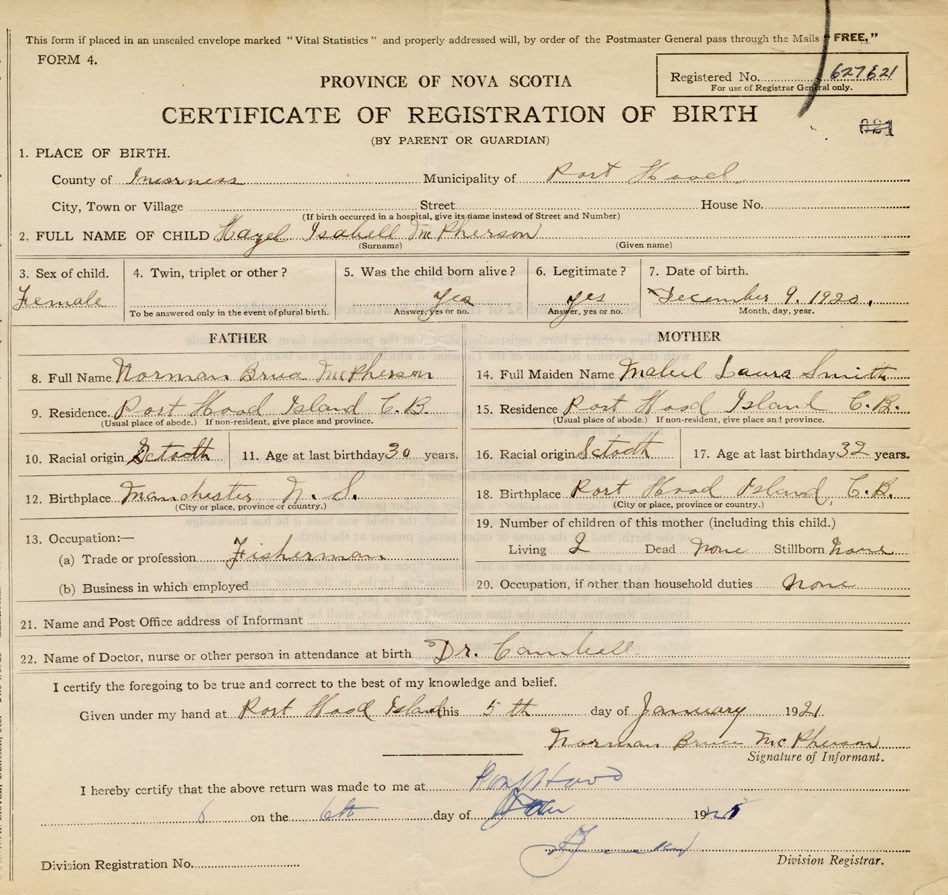 This form if placed in an unsealed envelope marked "Vital Statistics" and properly addressed will, by order of the Postmaster General pass through the Mails "FREE."
FORM 4.
Registered No. 627621
For use of Registrar General only.
PROVINCE OF NOVA SCOTIA
CERTIFICATE OF REGISTRATION OF BIRTH
(BY PARENT OR GUARDIAN)
1. PLACE OF BIRTH.
County of Inverness Municipality of Port Hood
City, Town or Village Street House No.
(If birth occurred in a hospital, give its name instead of Street and Number)
2. FULL NAME OF CHILD Hazel Isabell McPherson
(Surname) (Given name)
3. Sex of child. 4. Twin, triplet or other? 5. Was the child born alive? 6. Legitimate? 7. Date of birth.
Female yes yes December 9. 1920.
To be answered only in the event of plural birth. Answer, yes or no. Answer, yes or no. Month, day, year.
FATHER MOTHER
8. Full Name Norman McPherson 14. Full Maiden Name Mabel Laura Smith
9. Residence. Port Hood Island C.B. 15. Residence Port Hood Island C.B.
(Usual place of abode.) If non-resident, give place and province. (Usual place of abode.) If non-resident, give place and province.
10. Racial origin 11. Age at last birthday 30 years. 16. Racial origin 17. Age at last birthday 32 years.
12. Birthplace Manchester N. S. 18. Birthplace Port Hood Island, C.B.
(City or place, province or country.) (City or place, province or country.)
13. Occupation:— 19. Number of children of this mother (including this child.)
(a) Trade or profession Fisherman Living 2 Dead None Stillborn None
(b) Business in which employed 20. Occupation, if other than household duties None
21. Name and Post Office address of Informant
22. Name of Doctor, nurse or other person in attendance at birth Dr.
I certify the foregoing to be true and correct to the best of my knowledge and belief.
Given under my hand at Port Hood Island this 5th day of January 1921
Norman Bruce McPherson
Signature of Informant.
I hereby certify that the above return was made to me at Port Hood
on the 6th day of Jan 19
Division Registration No. Division Registrar.